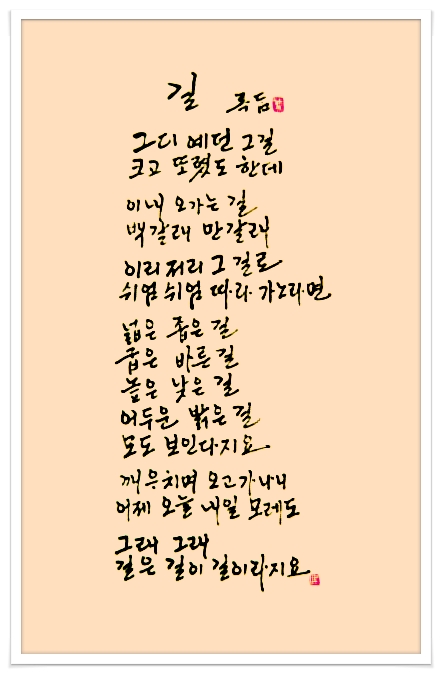 길 록듬
그디 예던 그길
크고 또렸도 한데
이내 오가는 길
백갈래 만갈래
이리저리 그 길로
쉬엄 쉬엄 따라 가노라면
넓은 좁은 길
굽은 바른 길
높은 낮은 길
어두운 밝은 길
모도 보인다지요
깨우치며 오고가나니
어제 오늘 내일 모레도
그래 그래
길은 길이 길이라지요